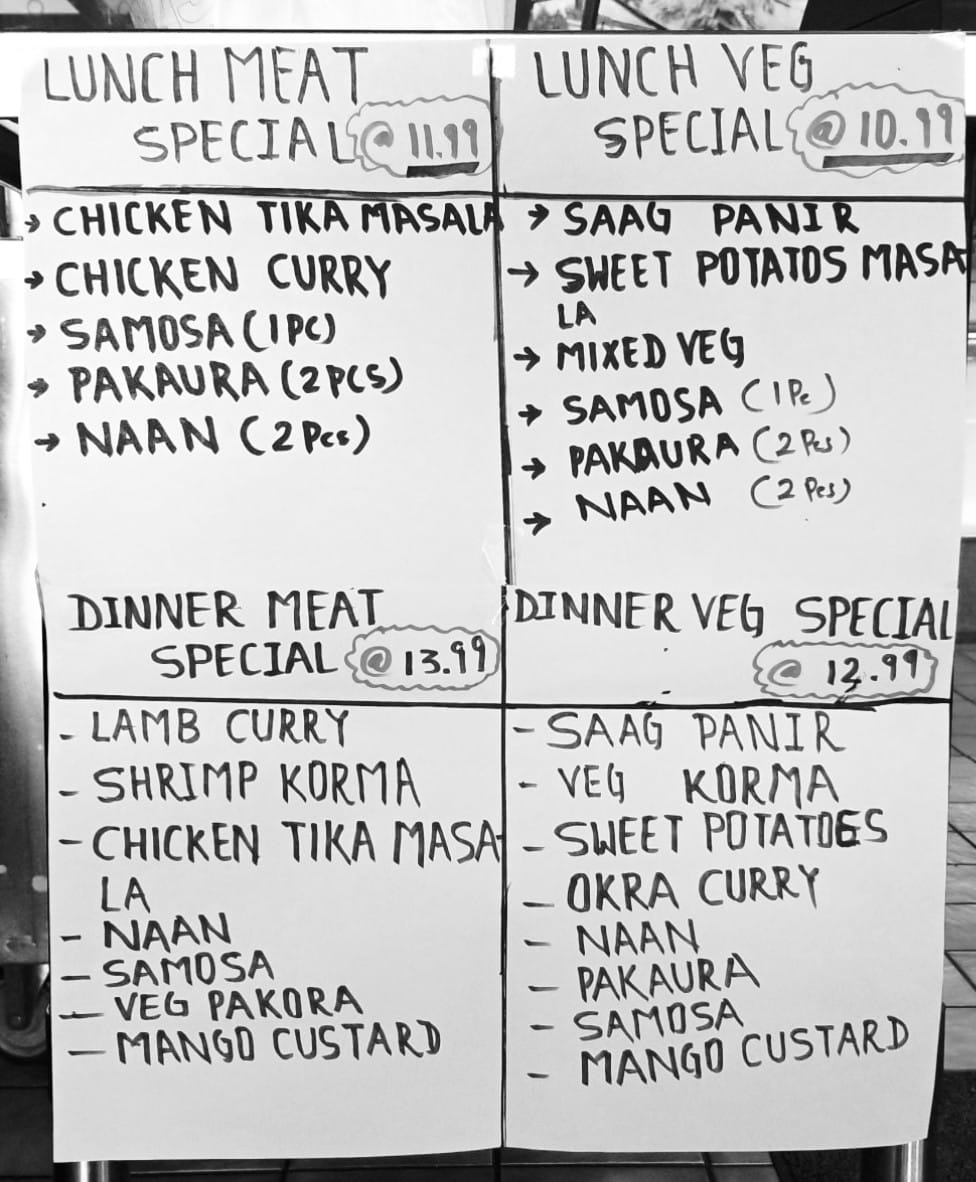 LUNCH MEAT
SPECIAL @ 11.99
→ CHICKEN TIKA MASALA
→ CHICKEN CURRY
→ SAMOSA (1 PC)
→ PAKAURA (2 PCS)
→ NAAN (2 Pcs)
LUNCH VEG
SPECIAL @ 10.99
→ SAAG PANIR
→ SWEET POTATOS MASA
LA
→ MIXED VEG
→ SAMOSA (1 Pc)
→ PAKAURA (2 Pcs)
→ NAAN (2 Pcs)
DINNER MEAT
SPECIAL @ 13.99
- LAMB CURRY
- SHRIMP KORMA
- CHICKEN TIKA MASA-
LA
- NAAN
- SAMOSA
- VEG PAKORA
- MANGO CUSTARD
DINNER VEG SPECIAL
@ 12.99
- SAAG PANIR
- VEG KORMA
- SWEET POTATOES
- OKRA CURRY
- NAAN
- PAKAURA
- SAMOSA
- MANGO CUSTARD